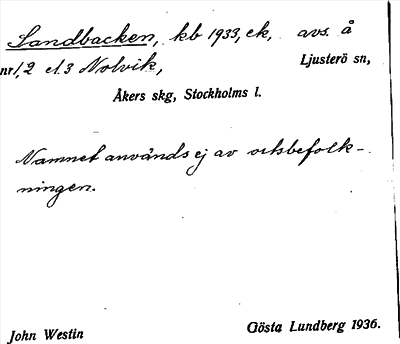 Sandbacken, kb 1933, ek, avs. å
nr 1, 2 el. 3 Nolvik, Ljusterö sn,
Åkers skg, Stockholms l.
Namnet användes ej av ortsbefolk-
ningen.
John Westin Gösta Lundberg 1936.